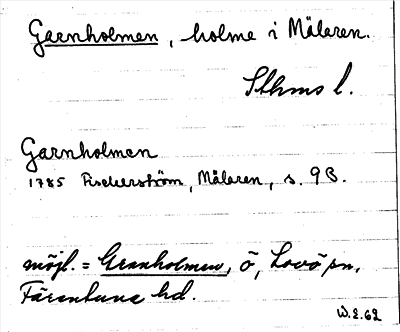 Garnholmen, holme i Mälaren.
Sthms l.
Garnholmen
1785 Fischerström, Mälaren, s. 98.
möjl. = Granholmen, ö, Lovö sn,
Färentuna hd.
W.E.62